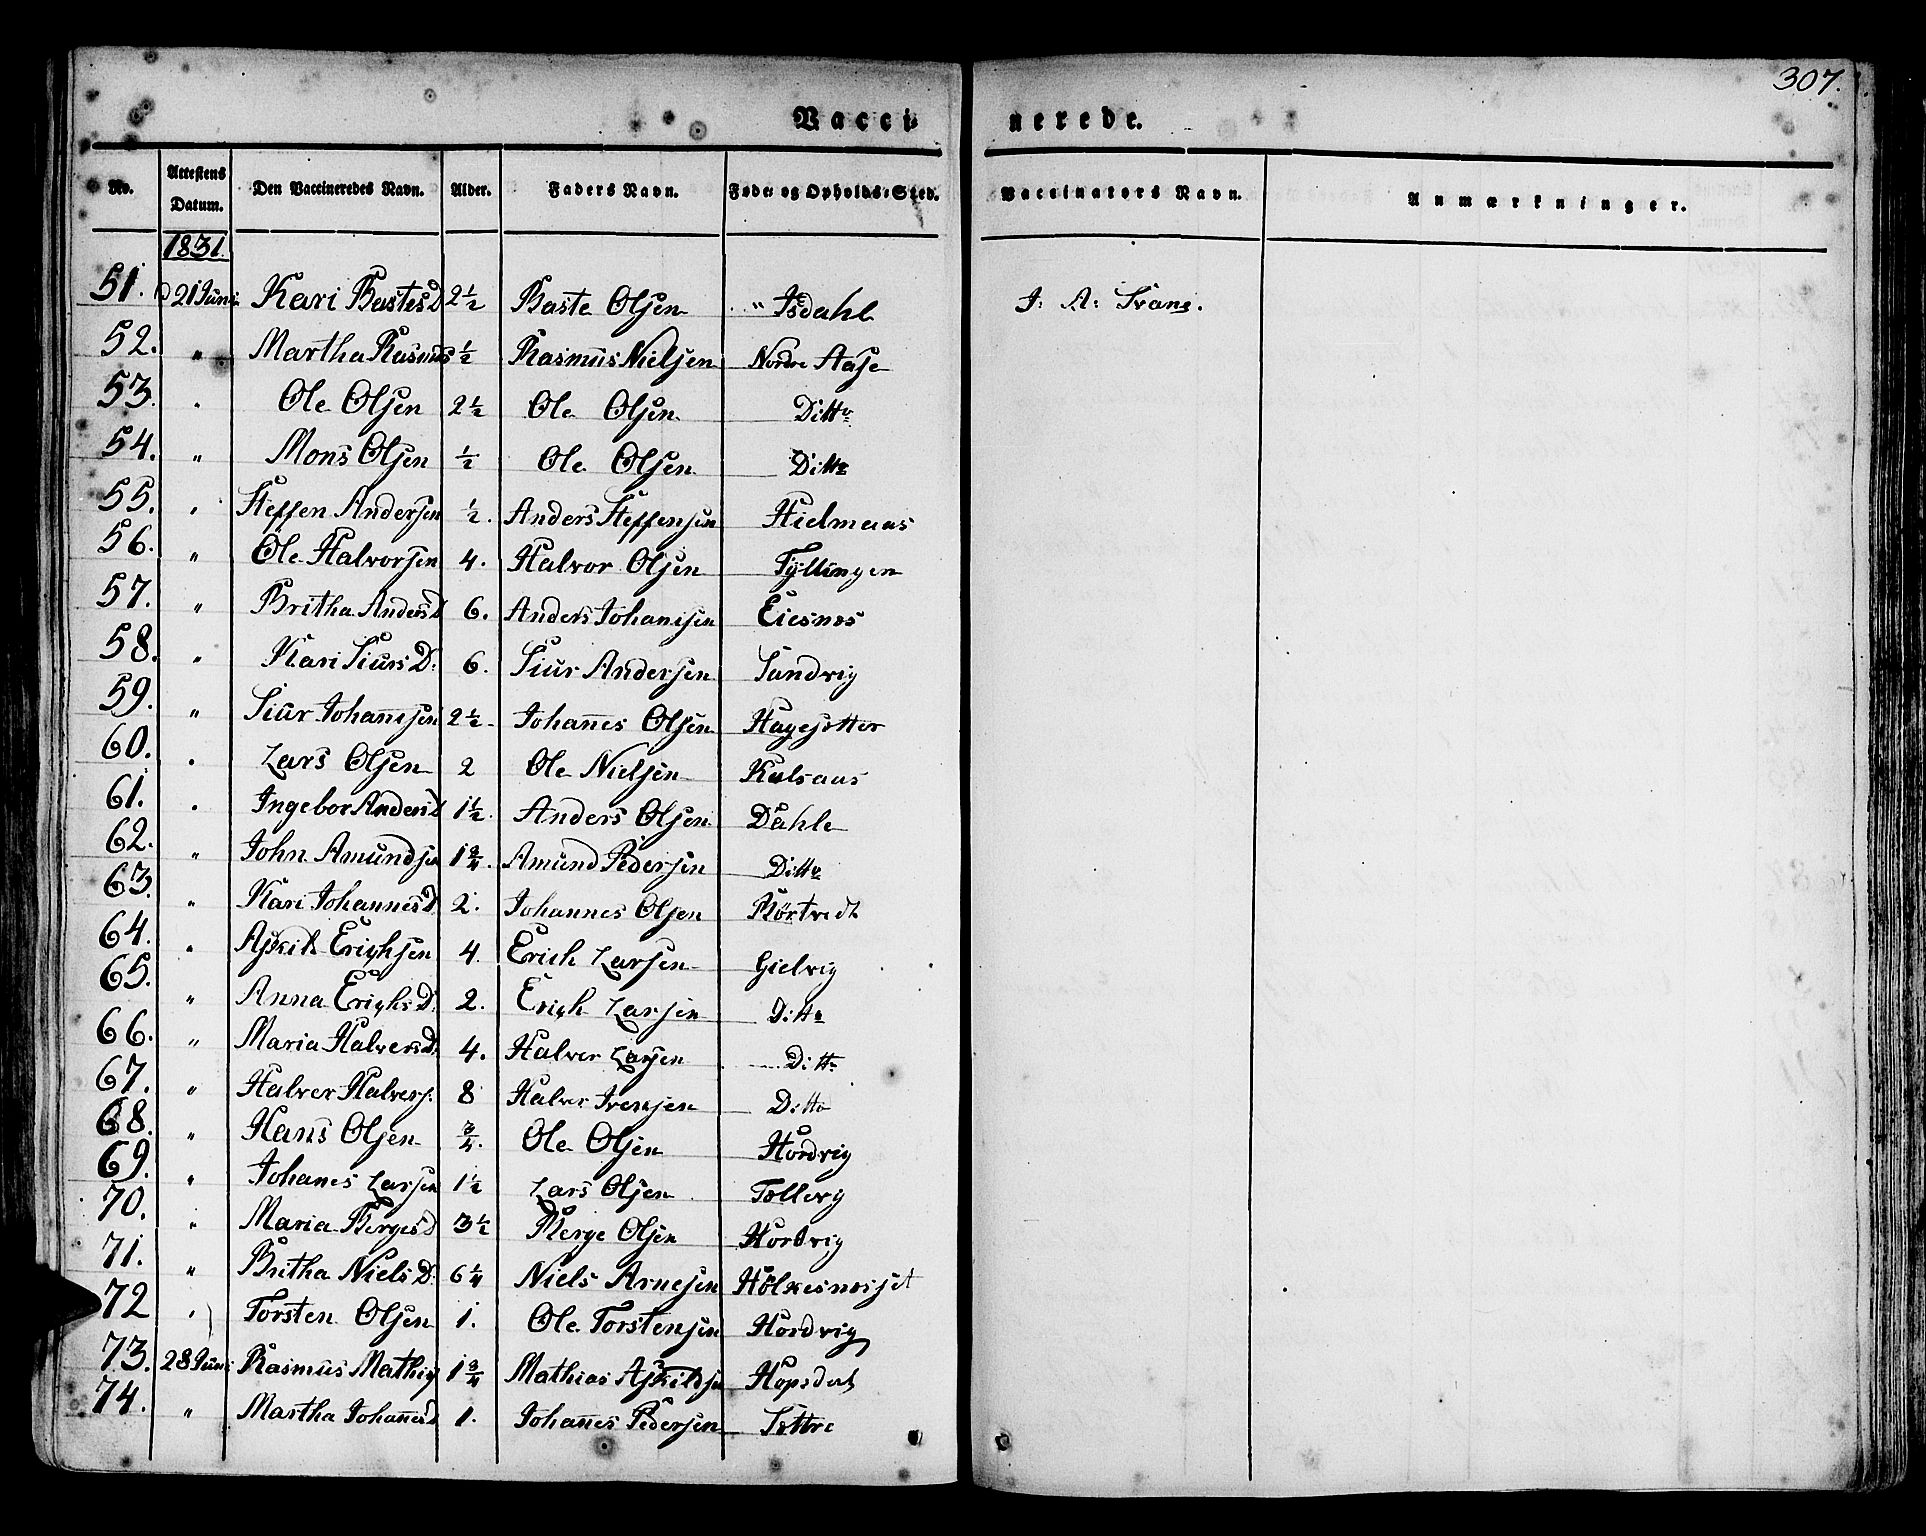 307.
Vacci-
nerede.
No. Attestens Datum. Den Vaccineredes Navn. Alder. Faders Navn. Føde- og Opholds-Sted. Vaccinators Navn. Anmærkninger.
1831.
51. D 21 Juni Kari BastesD 2 1/2 Baste Olsen " Isdahl J: A: Svane.
52. " Martha Rasmus 1/2 Rasmus Nielsen Nordre Aase
53. " Ole Olsen 2 1/2 Ole Olsen Ditto
54. " Mons Olsen 1/2 Ole Olsen Ditto
55. " Steffen Andersen 1/2. Anders Steffensen Hielmaas
56. " Ole Halvorsen 4. Halvor Olsen Tyllingen
57. " Britha AndersD 6. Anders Johansen Eiesnæs
58. " Kari SiursD: 6. Siur Andersen Sundvig
59. " Siur Johannesen 2 1/2 Johannes Olsen Hagesætter
60. " Lars Olsen 2 Ole Nielsen Kulsaas
61. " Ingebor AndersD 1 1/2. Anders Olsen Dahle
62. " John Amundsen 1 3/4. Amund Pedersen Ditto
63. " Kari JohannesD. 2. Johannes Olsen Rörtvedt
64. " Askild Erichsen 4. Erich Larsen Gielvig
65. " Anna ErichsD. 2. Erich Larsen Ditto
66. " Maria HalversD. 4. Halver Larsen Ditto
67. " Halver Halvers: 8 Halver Ivensen Ditto
68. " Hans Olsen 3/4. Ole Olsen Hordvig
69. " Johanes Larsen 1 1/2 Lars Olsen Tollevig
70. " Maria BergesD 3 1/2 Berge Olsen Hordvig
71. " Britha NielsD: 6 1/4 Niels Arnesen Hölkesnæsset
72 " Torsten Olsen 1. Ole Torstensen Hordvig
73. 28 Juni Rasmus Mathis 1 3/4 Mathias Askildsen Hopsdal
74. " Martha JohannesD 1. Johannes Pedersen Sættre